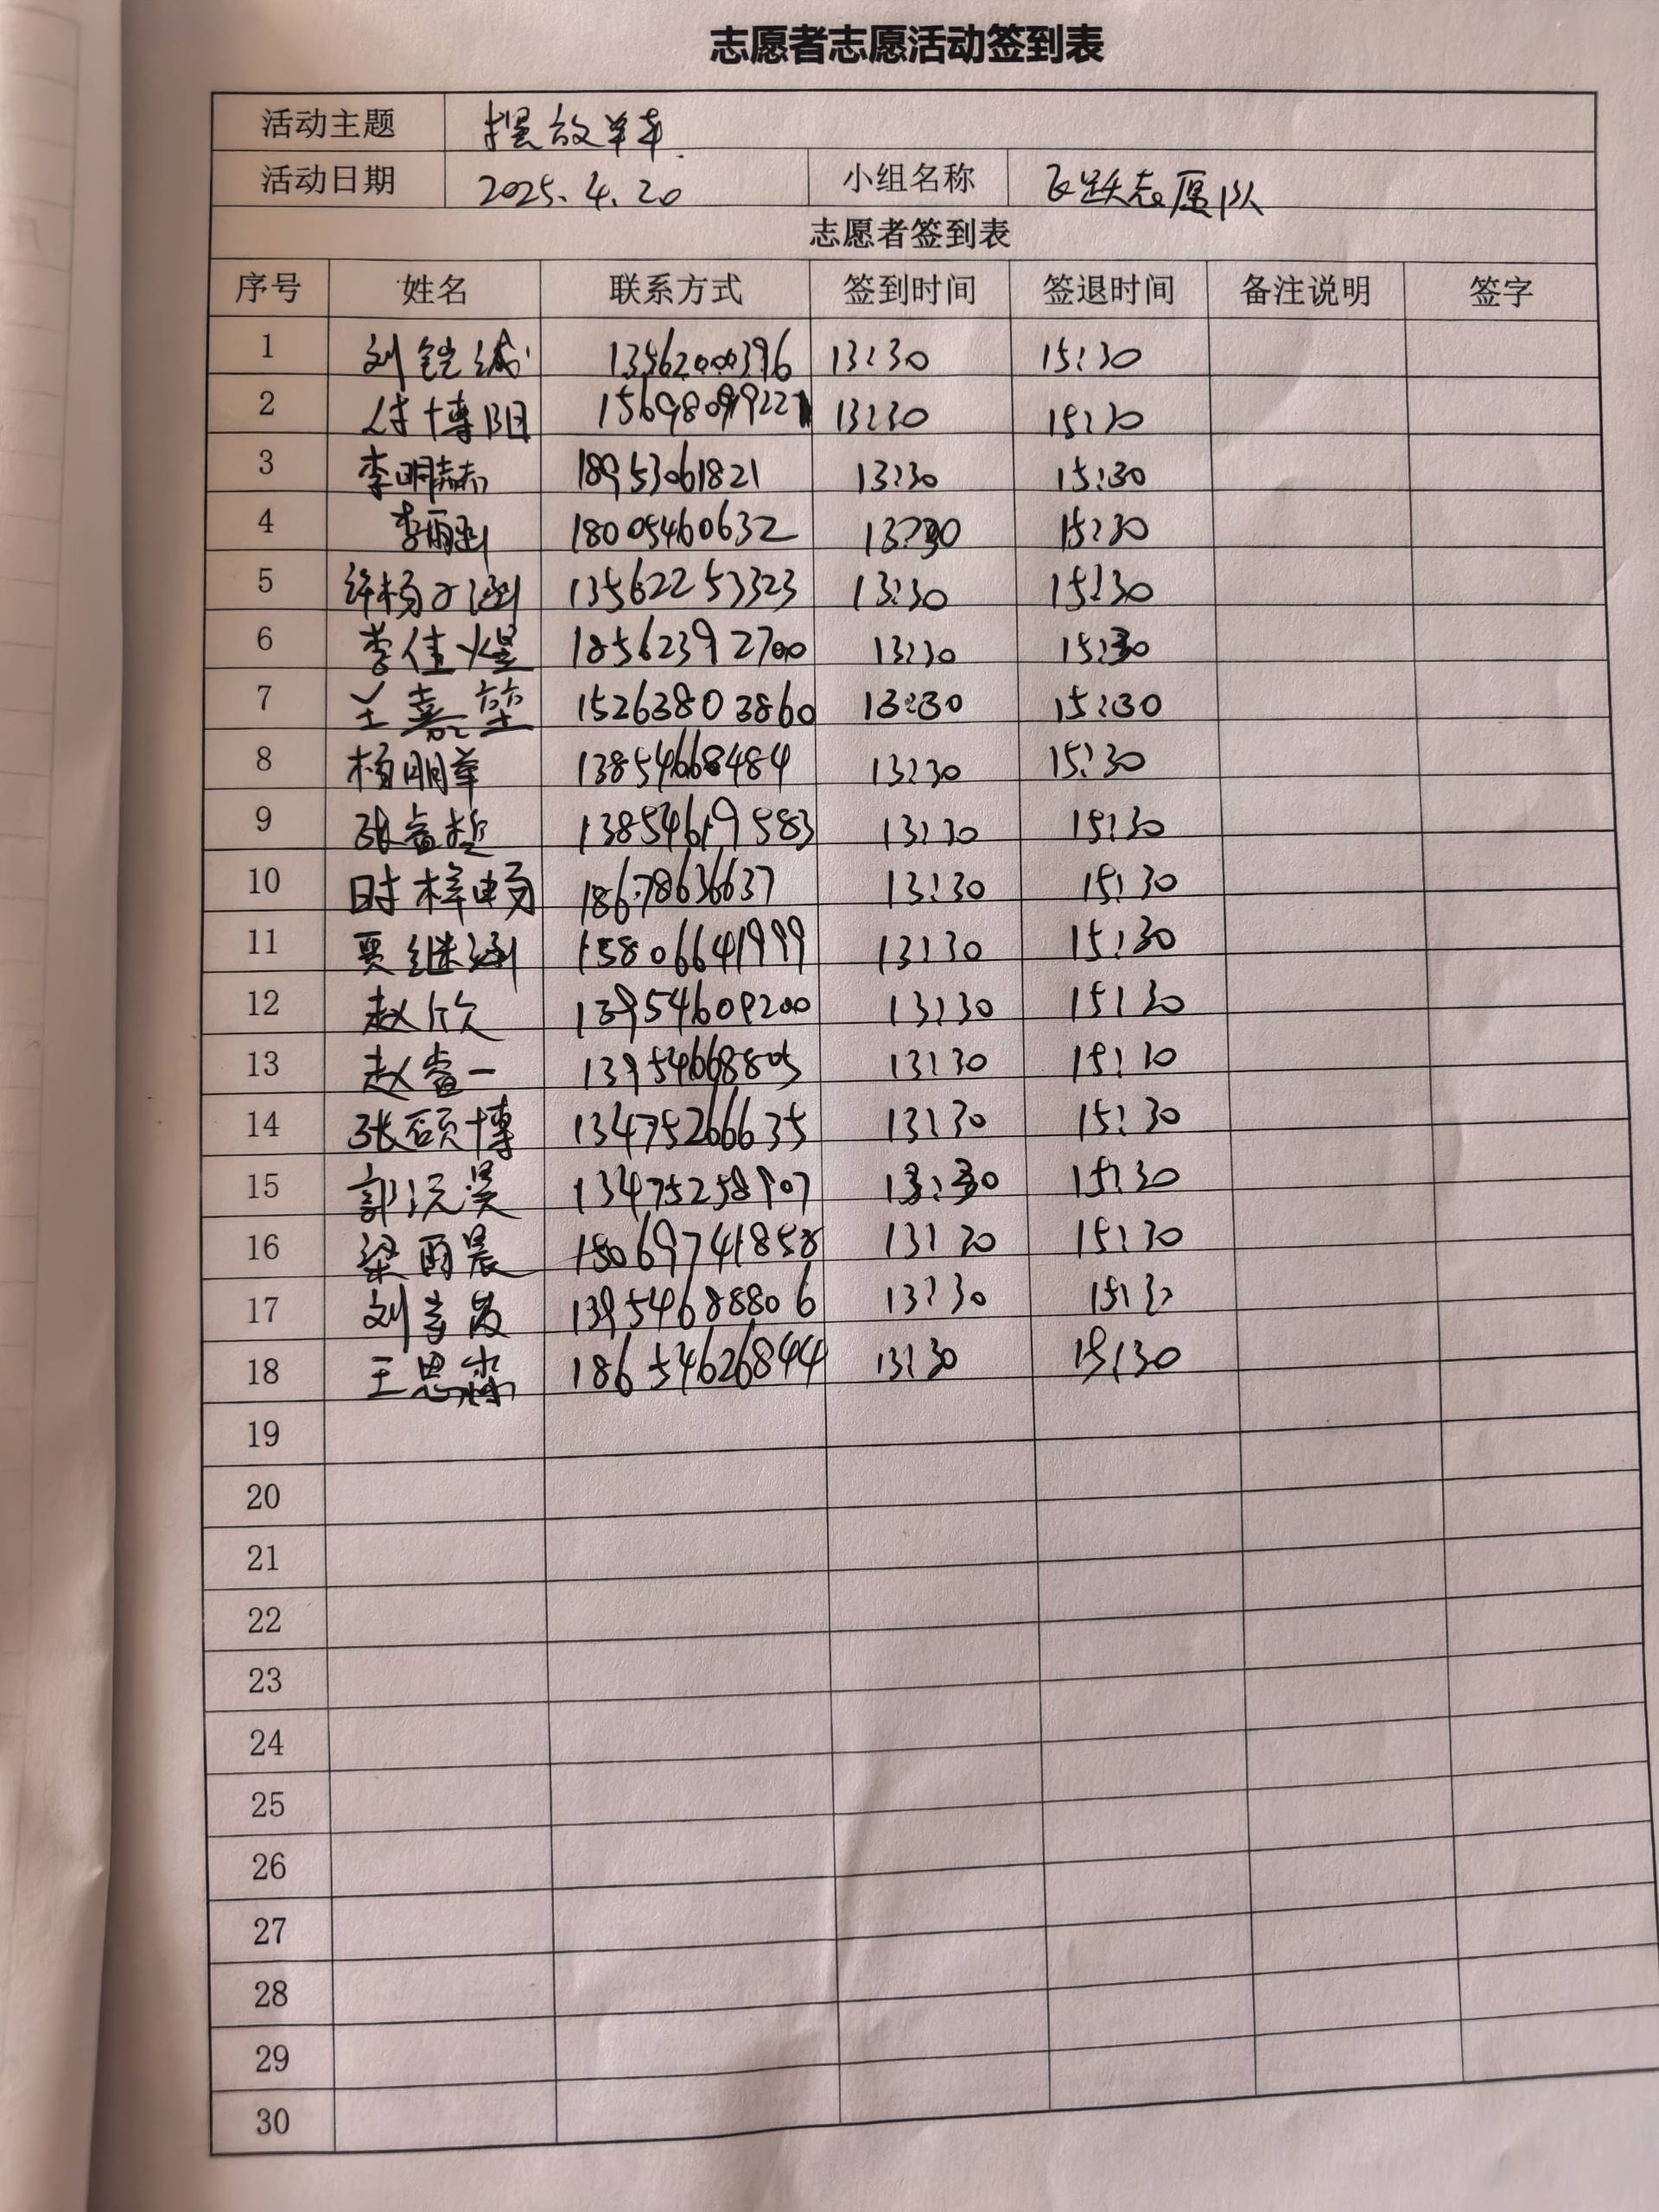 志愿者志愿活动签到表
活动主题 摆放单车
活动日期 2025.4.20 小组名称 飞跃志愿队
志愿者签到表
序号 姓名 联系方式 签到时间 签退时间 备注说明 签字
1 刘铠诚 13562000396 13:30 15:30
2 付博阳 13:30 15:30
3 李明赫 18953061821 13:30 15:30
4 李雨涵 18005460632 13:30 15:30
5 许杨子涵 13562253323 13:30 15:30
6 李佳煜 18562392700 13:30 15:30
7 王嘉堃 15263803860 13:30 15:30
8 杨明 13854668484 13:30 15:30
9 张睿哲 13854619583 13:30 15:30
10 时梓畅 18678636637 13:30 15:30
11 贾继涵 15806641999 13:30 15:30
12 赵欣 13954609200 13:30 15:30
13 赵睿一 13954668805 13:30 15:30
14 张硕博 13475266635 13:30 15:30
15 郭沅昊 13475258907 13:30 15:30
16 梁雨晨 15069741858 13:30 15:30
17 刘 13954688806 13:30 15:30
18 王思 18654626844 13:30 15:30
19
20
21
22
23
24
25
26
27
28
29
30